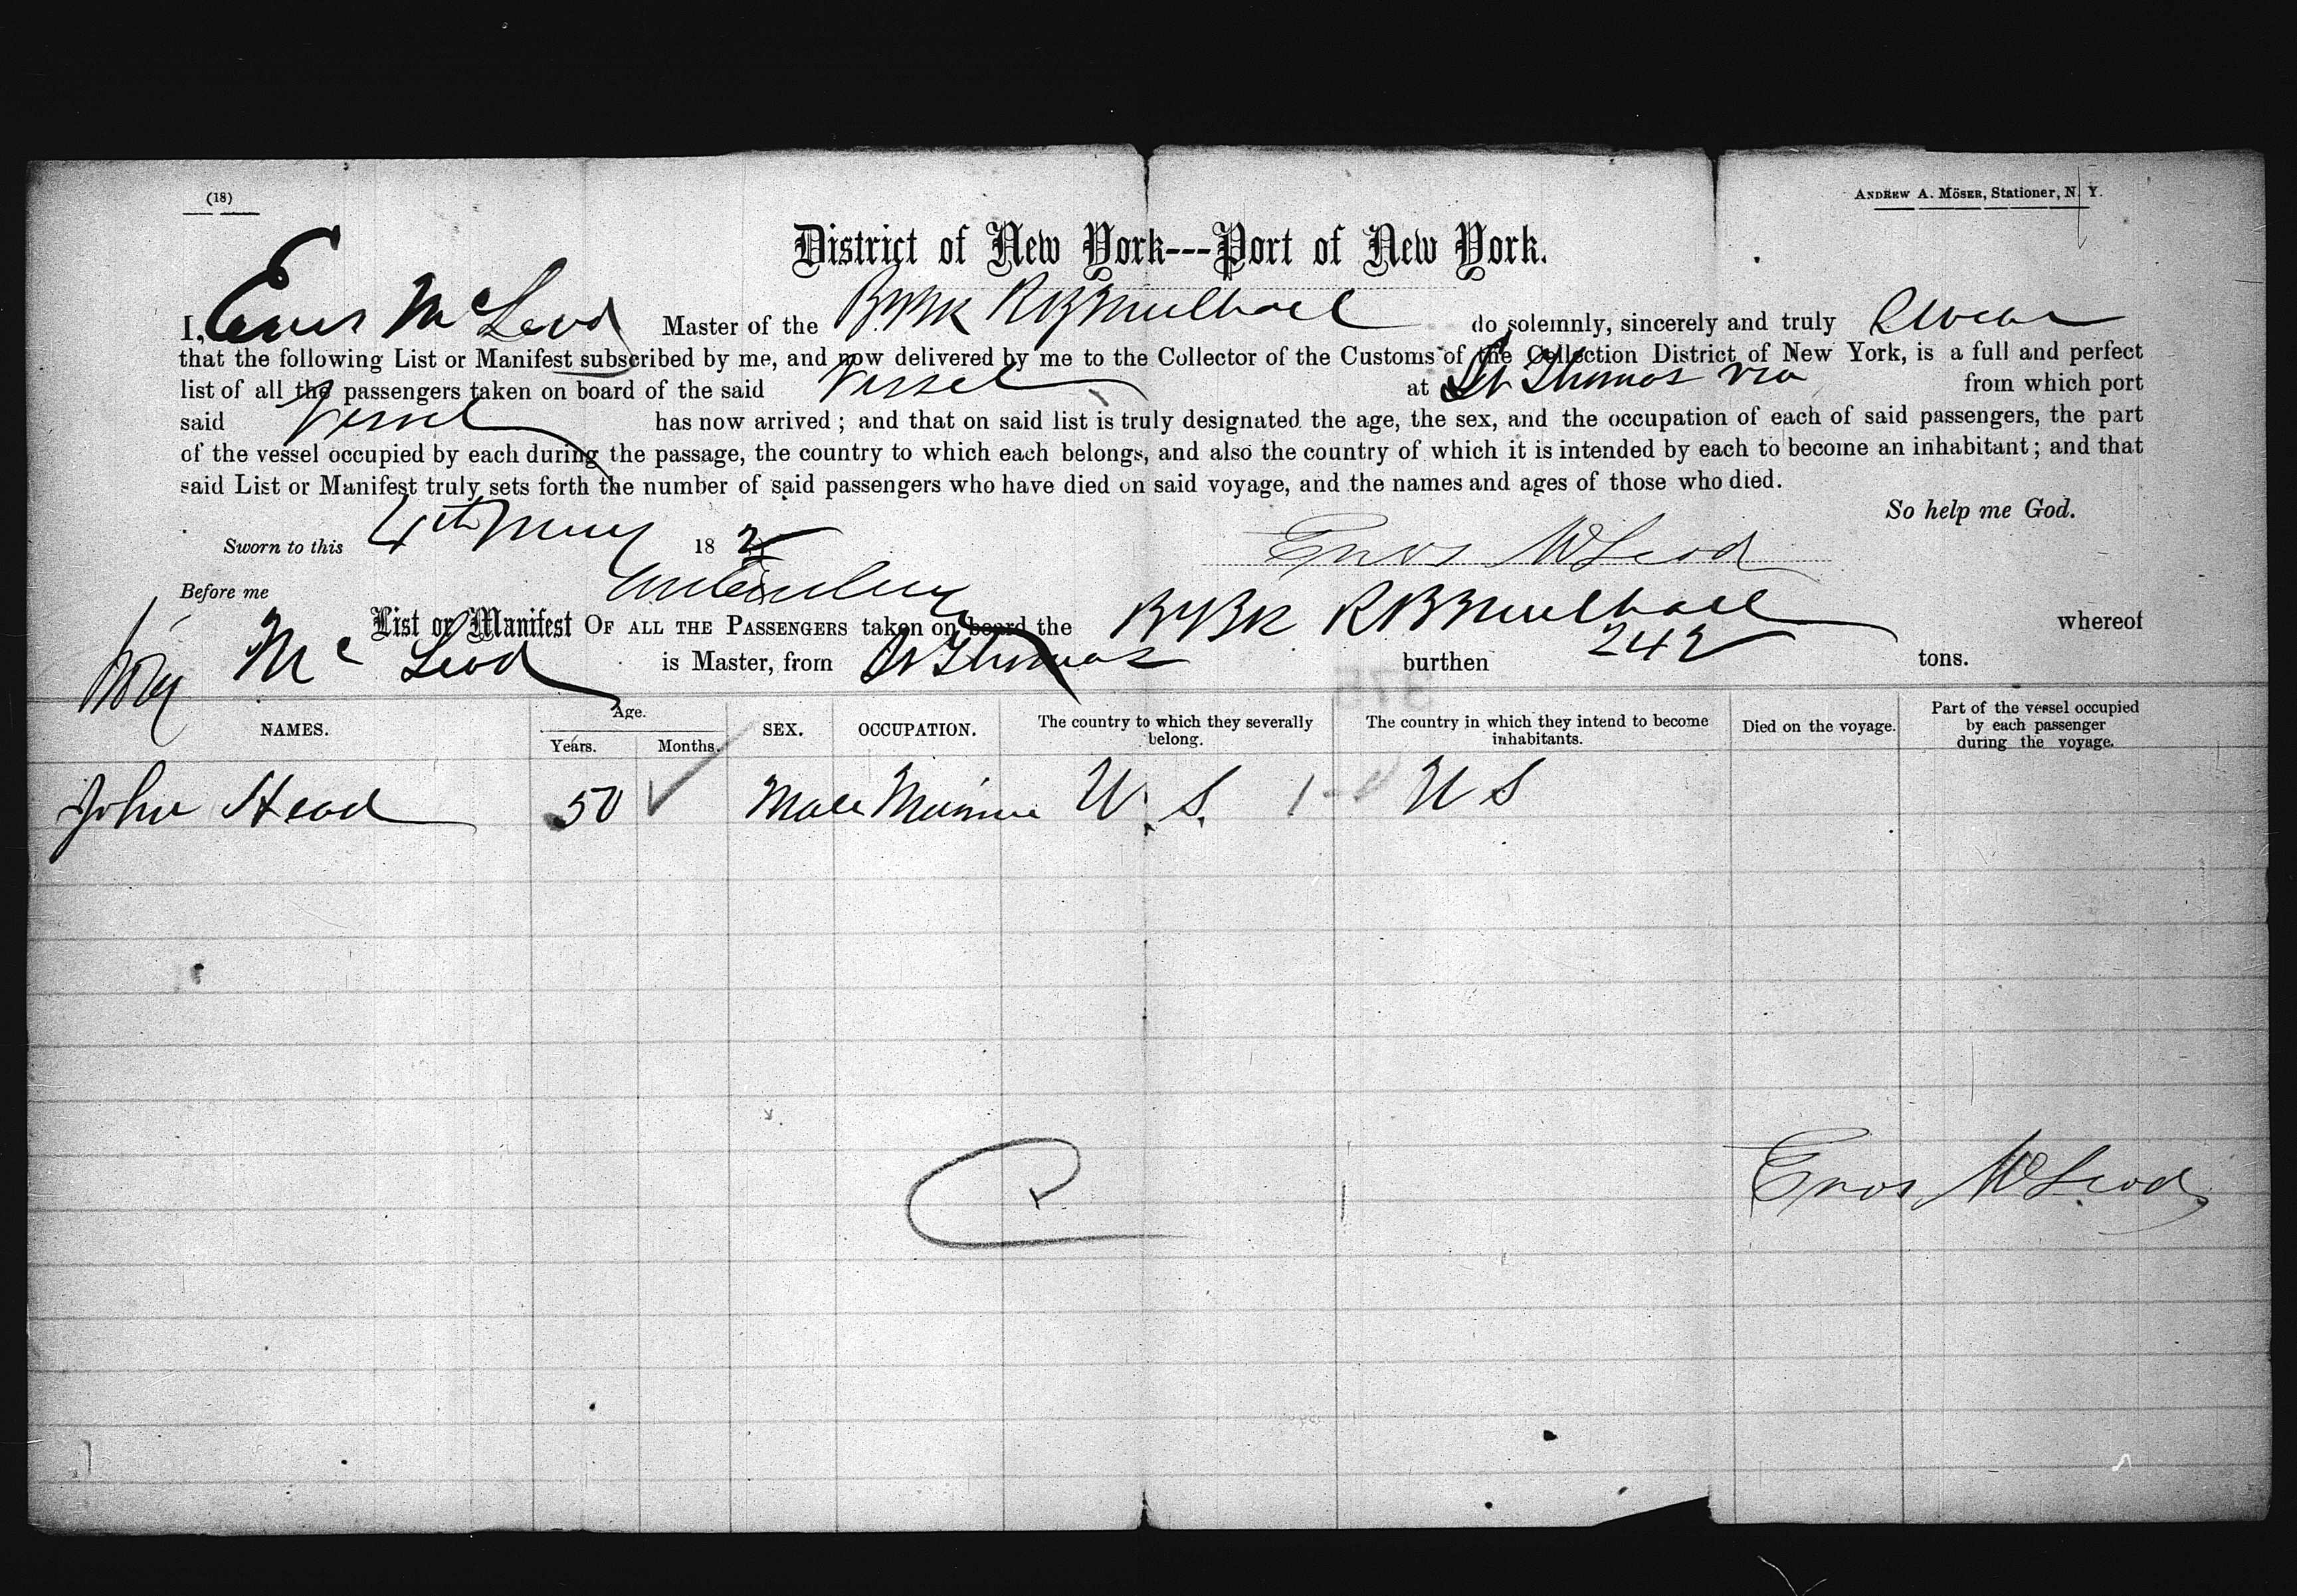 (18)
ANDREW A. MÖSER, Stationer, N. Y.
District of New York---Port of New York.
I, Enos McLeod Master of the Br Bk R B Mulhall do solemnly, sincerely and truly Swear
that the following List or Manifest subscribed by me, and now delivered by me to the Collector of the Customs of the Collection District of New York, is a full and perfect
list of all the passengers taken on board of the said Vessel at St Thomas via from which port
said Vessel has now arrived; and that on said list is truly designated the age, the sex, and the occupation of each of said passengers, the part
of the vessel occupied by each during the passage, the country to which each belongs, and also the country of which it is intended by each to become an inhabitant; and that
said List or Manifest truly sets forth the number of said passengers who have died on said voyage, and the names and ages of those who died.
So help me God.
Sworn to this 4th May 18 Enos McLeod
Before me
List or Manifest OF ALL THE PASSENGERS taken on board the Br Bk R B Mulhall whereof
McLeod is Master, from St Thomas burthen 242 tons.
NAMES. Age. Years. Months. SEX. OCCUPATION. The country to which they severally belong. The country in which they intend to become inhabitants. Died on the voyage. Part of the vessel occupied by each passenger during the voyage.
John Head 50 Male U. S. U S
Enos McLeod